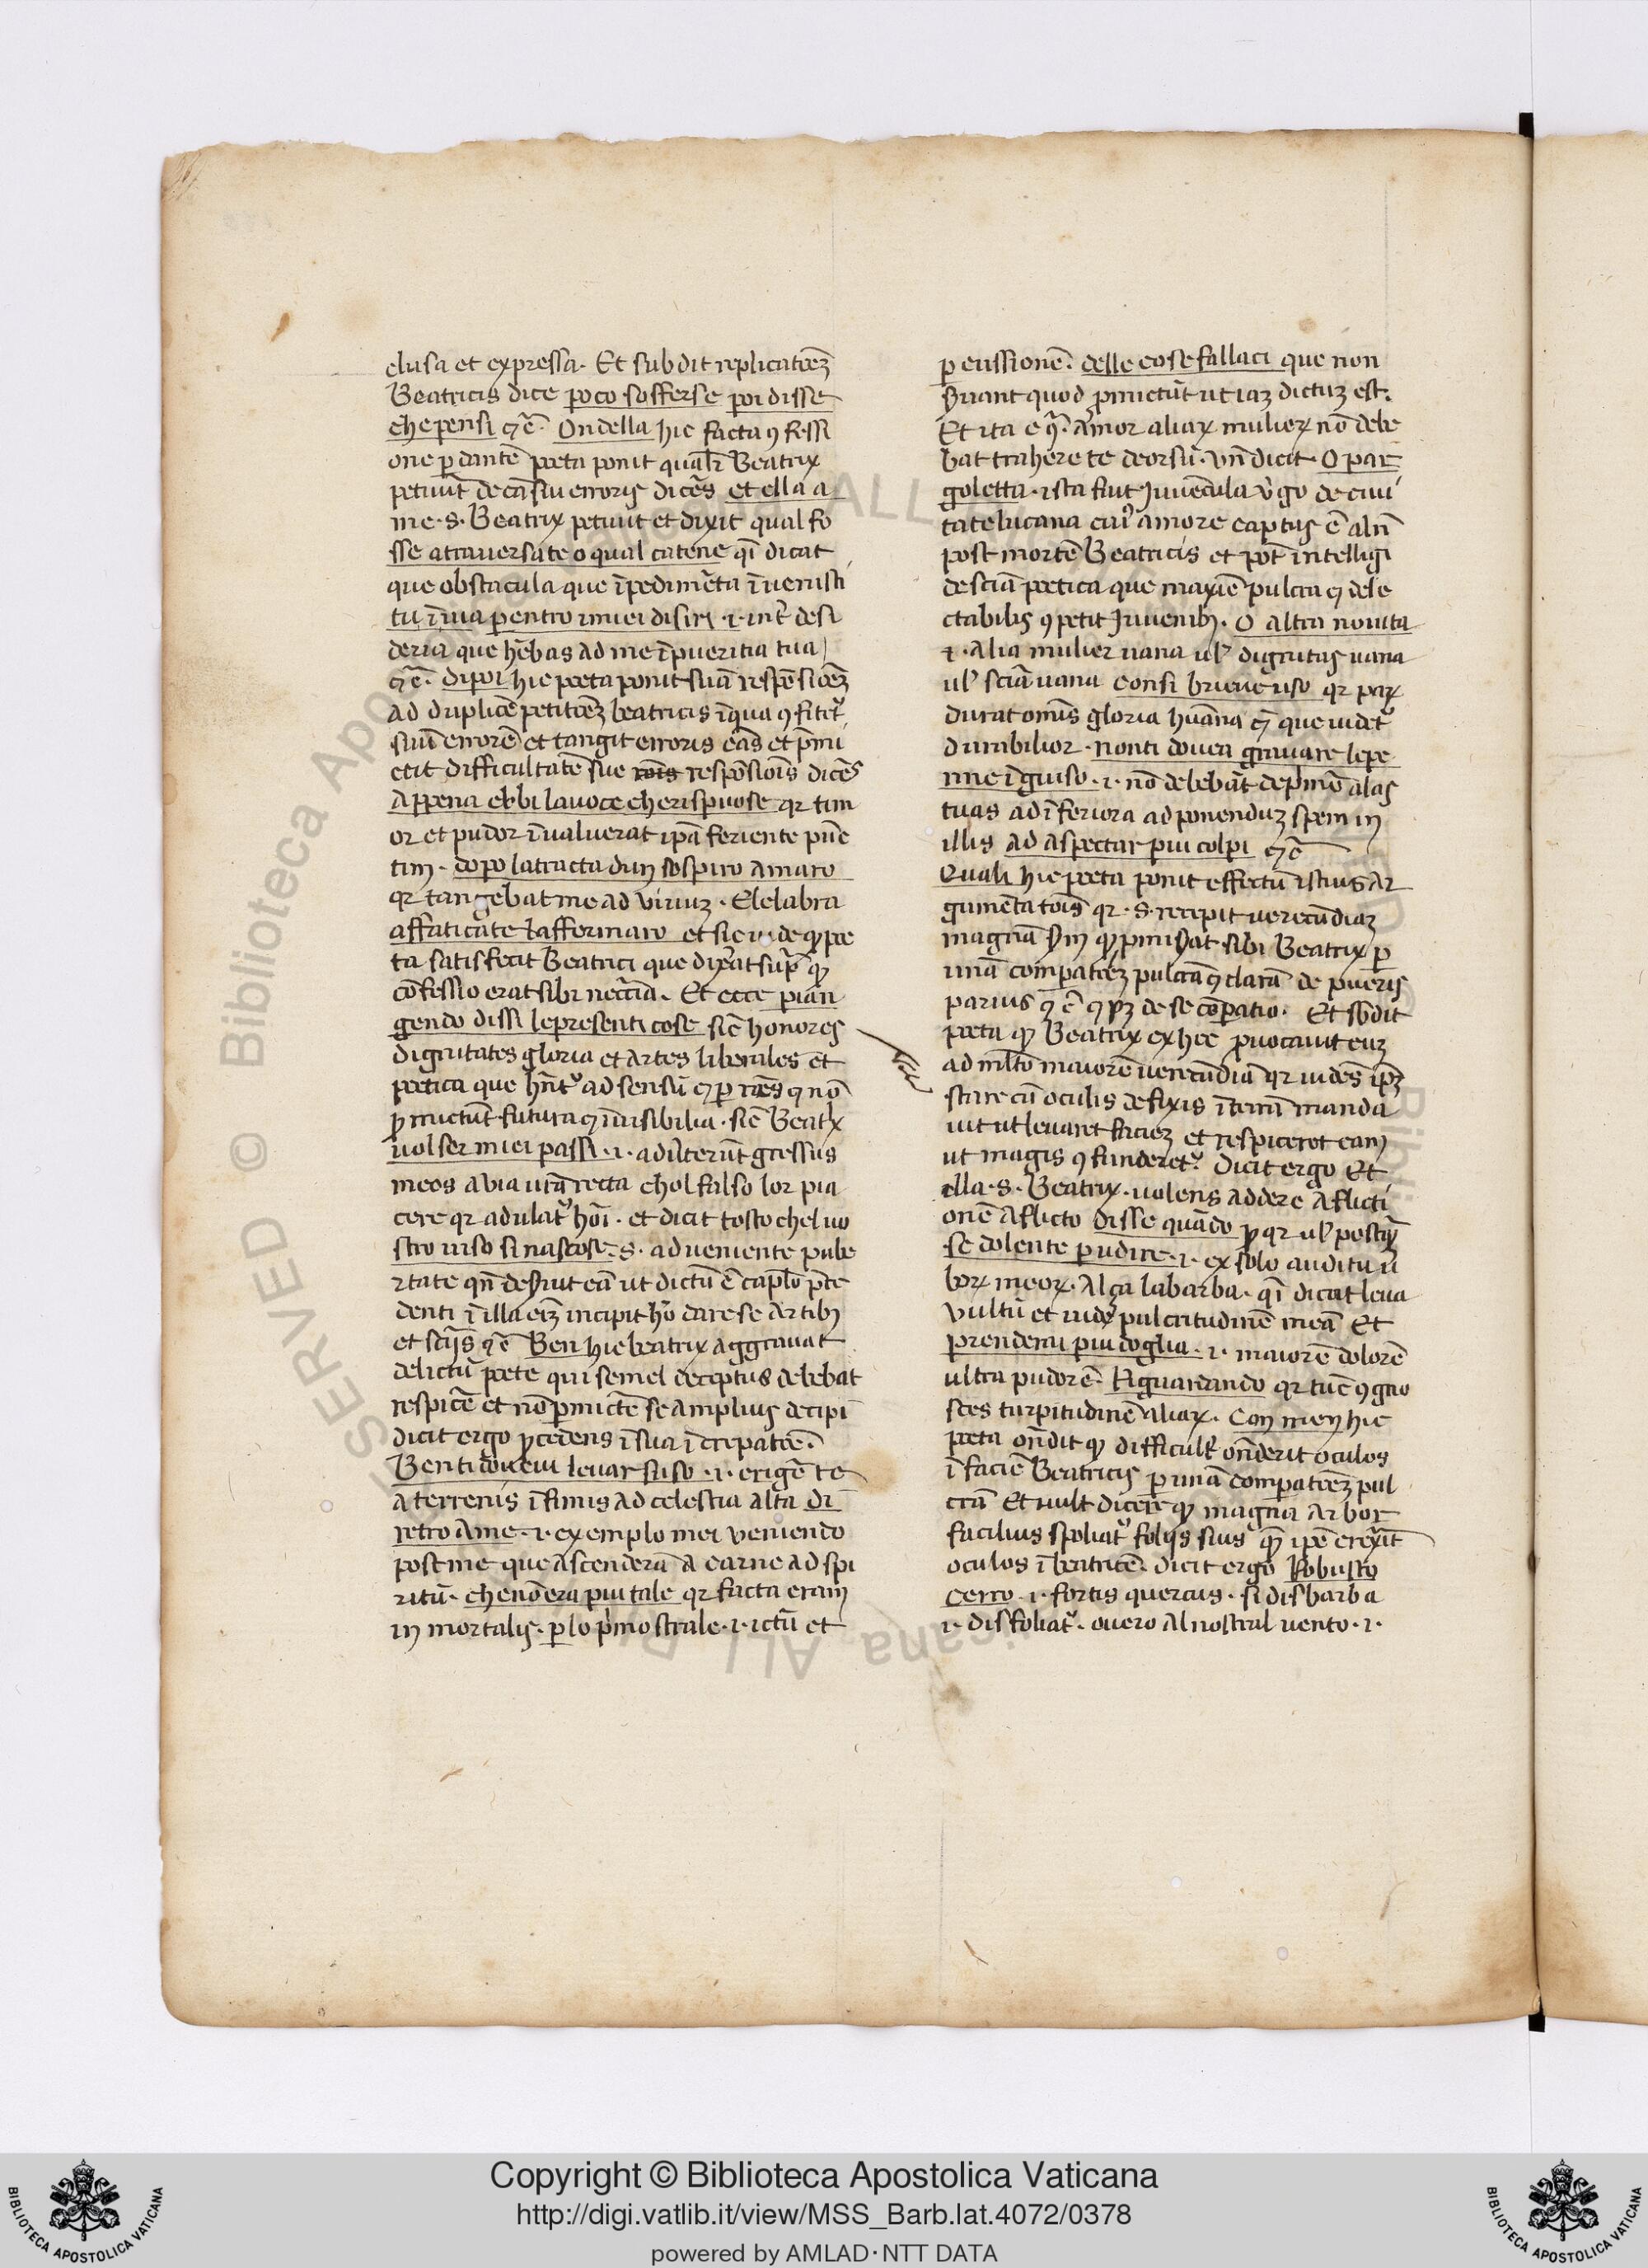 clusa et expressa. Et subdit replicatōeꝫ
Beatricis dice poco sofferse poi disse
che pensi ⁊cē. Ondella hic facta ꝯfessi
one ꝑ dantē poeta ponit qualr̄ Beatrix
petiuit de cā sui erroris dicēs et ella a
me .s. Beatrix petiuit et dixit qual fo
sse atrauersate o qual catene qͥ dicat
que obstacula que īpedimēta īuenisti
tu ī uia ꝑ entro i miei disiri .i. intͣ desi
deria que hēbas ad me ī pueritia tua
⁊cē. dipoi hic poeta ponit suā respōsiōeꝫ
ad duplicē petitōeꝫ beatricis ī qua ꝯfitetᷣ
suū errorē et tangit erroris cās et p̄mi
ctit difficultatē sue respōsiōis dicēs
Appena ebbi la uoce che rispuose qꝛ tim
or et pudor īualuerat ip̄a feriente pūc
tim. dopo la tracta dun sospiro amaro
qꝛ tangebat me ad uiuuꝫ. E le labra
affaticate laffermaro et sic uide ꝙ poe
ta satisfecit Beatrici que dixerat supͣ ꝙ
cōfessio erat sibi necc̄ia. Et ecce pian
gendo dissi le presenti cose sic̄ honores
dignitates gloria et artes liberales et
poetica que hn̄tᷣ ad sensū ⁊ ꝑ rōēs ⁊ nō
ꝑmictūt futura ⁊ īuisibilia. sic̄ Beatx̄
uolser miei passi .i. aduerterūt gressus
meos a uia ur̄a recta chol falso lor pia
cere qꝛ adulatᷣ hōī. et dicit tosto chel uo
stro uiso si nascose .s. adueniente pube
rtate qn̄ deseruit eā ut dictū ē capl̄o p̄ce
denti ī illa eīꝫ incipit hō dare se artibꝫ
et sciīs ⁊cē Ben hic beatrix aggrauat
delictū poete qui semel deceptus debebat
respicē et nō ꝑmictē se amplius decipi
dicit ergo ꝓcedens ī sua īcrepatōe.
Ben ti doueui leuar suso .i. erigē te
a terrenis īfimis ad celestia alta di
retro a me .i. exemplo mei ueniendo
post me que ascenderā a carne ad spi
ritū. che nō era piu tale qꝛ facta eram
inmortalis. ꝑ lo p̄mo strale .i. ictū et
ꝑcussionē. delle cose fallaci que non
seruant quod ꝓmictūt ut iaꝫ dictuꝫ est.
Et ita ecͣ. amor aliaꝝ mulieꝝ nō debe
bat trahere te deorsū. vn̄ dicit. O par
goletta. ista fuit Iuuēcula v̓go de ciui
tate lucana cuiᷣ amore captus ē aln̄
post mortē Beatricis et pōt intelligi
de sciā poetica que maxīe pulcra ⁊ dele
ctabilis ꝯpetit Iuuenibꝫ. O altra nouita
.i. alia mulier uana ul̓ dignitas uana
ul̓ sciā uana con si brieue uso qꝛ paꝝ
durat omīs gloria huāna ⁊ que uidetᷣ
durabilior. non ti douea grauare le pe
nne ī giuso .i. nō debebāt dep̄mē alas
tuas ad īferiora ad ponenduꝫ spem in
illis ad aspectar piu colpi ⁊cē
Quali hic poeta ponit effectū istius ar
gumētatōīs qꝛ .s. recepit uerecūdiaꝫ
magnā
unā compatōeꝫ pulcrā ⁊ clarā de pueris
paruis Et sb̄dit
poeta ꝙ Beatrix ex hoc ꝓuocauit euꝫ
ad ml̄to maiorē uerecūdiā qꝛ uidēs ip̄ꝫ
stare cū oculis defixis ī terrā manda
uit ut leuaret facieꝫ et respiceret eam
ut magis ꝯfunderetᷣ. Dicit ergo Et
ella .s. Beatrix. uolens addere aflicti
onē aflicto Disse quādo
se dolente ꝑ udire .i. ex solo auditu ū
boꝝ meoꝝ. Alça la barba. qͥ dicat leua
vultū et uide pulcritudinē meā Et
prenderai piu doglia .i. maiorē dolorē
ultra pudorē. Riguardando qꝛ tūc ꝯgno
sces turpitudinē aliaꝝ. Con men hic
poeta ōn̄dit ꝙ difficult̓ ōn̄derit oculos
ī faciē Beatricis ꝑ unā compatōeꝫ pul
crā Et uult dicere ꝙ magna arbor
facilius spoliatᷣ folijs suis qͣ ip̄e erexit
oculos ī beatricē. dicit ergo Robusto
cerro .i. fortis quercus. si disbarba
.i. disfoliatᷣ. ouero al nostral uento .i.
Copyright © Biblioteca Apostolica Vaticana
http://digi.vatlib.it/view/MSS_Barb.lat.4072/0378
powered by AMLAD·NTT DATA
BIBLIOTECA APOSTOLICA VATICANA
BIBLIOTECA APOSTOLICA VATICANA